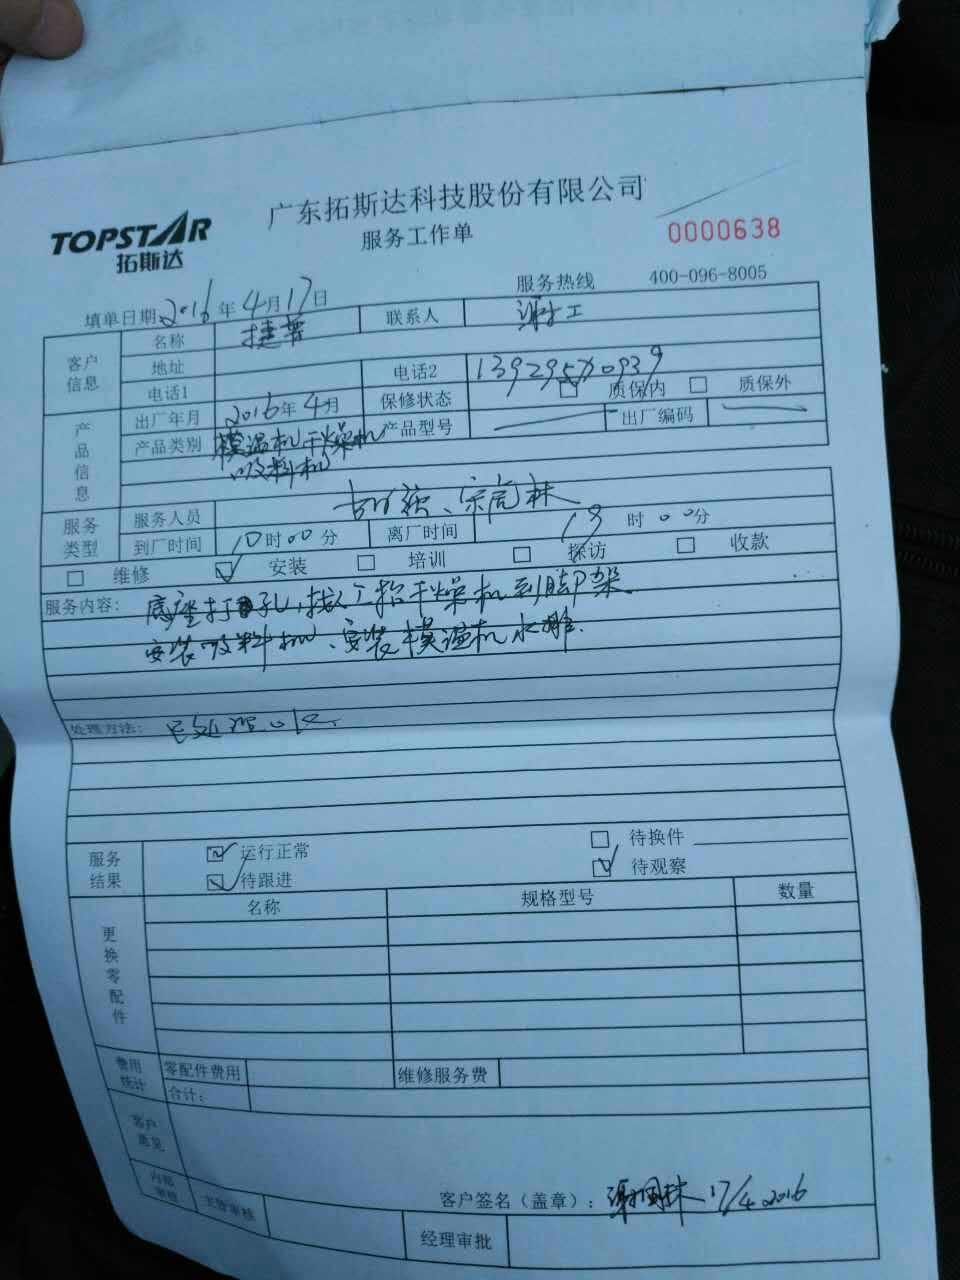 广东拓斯达科技股份有限公司
TOPSTAR
拓斯达
服务工作单
0000638
服务热线 400-096-8005
填单日期 2016年4月17日
客户信息
名称 捷普 联系人 谢工
地址
电话1 电话2 13929570939
产品信息
出厂年月 2016年4月 保修状态 质保内 质保外
产品类别 模温机 干燥机 产品型号 出厂编码
吸料机
服务类型
服务人员
到厂时间 10时00分 离厂时间 19时00分
维修 安装 培训 探访 收款
服务内容: 底座打孔,找人工抬干燥机到脚架.
安装吸料机、安装模温机水排.
处理方法: 已处理OK.
服务结果
运行正常 待换件
待跟进 待观察
更换零配件
名称 规格型号 数量
费用统计
零配件费用 维修服务费
合计:
客户意见
客户签名(盖章): 17/4 2016
内部审核 主管审核 经理审批